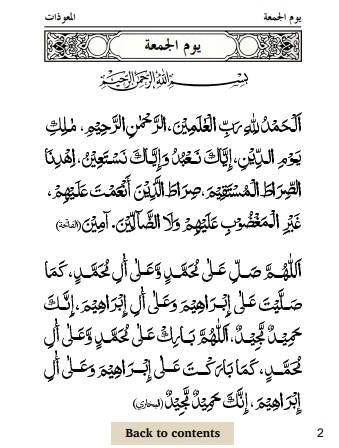 يوم الجمعة
المعوذات
يوم الجمعة
بِسْمِ اللهِ الرَّحْمٰنِ الرَّحِيْمِ
اَلْحَمْدُ لِلّٰهِ رَبِّ الْعٰلَمِيْنَ، الرَّحْمٰنِ الرَّحِيْمِ، مٰلِكِ
يَوْمِ الدِّيْنِ، إِيَّاكَ نَعْبُدُ وَإِيَّاكَ نَسْتَعِيْنُ، اِهْدِنَا
الصِّرَاطَ الْمُسْتَقِيْمَ، صِرَاطَ الَّذِيْنَ أَنْعَمْتَ عَلَيْهِمْ،
غَيْرِ الْمَغْضُوْبِ عَلَيْهِمْ وَلَا الضَّآلِّيْنَ. آمِيْنَ (الفاتحة)
اَللّٰهُمَّ صَلِّ عَلٰى مُحَمَّدٍ وَّعَلٰى اٰلِ مُحَمَّدٍ، كَمَا
صَلَّيْتَ عَلٰى إِبْرَاهِيْمَ وَعَلٰى اٰلِ إِبْرَاهِيْمَ، إِنَّكَ
حَمِيْدٌ مَّجِيْدٌ، اَللّٰهُمَّ بَارِكْ عَلٰى مُحَمَّدٍ وَّعَلٰى اٰلِ
مُحَمَّدٍ، كَمَا بَارَكْتَ عَلٰى إِبْرَاهِيْمَ وَعَلٰى اٰلِ
إِبْرَاهِيْمَ، إِنَّكَ حَمِيْدٌ مَّجِيْدٌ (البخاري)
Back to contents
2